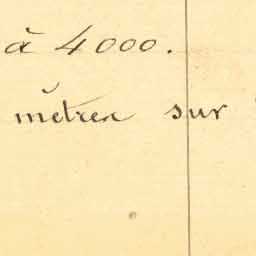 à 4000.
mètres sur